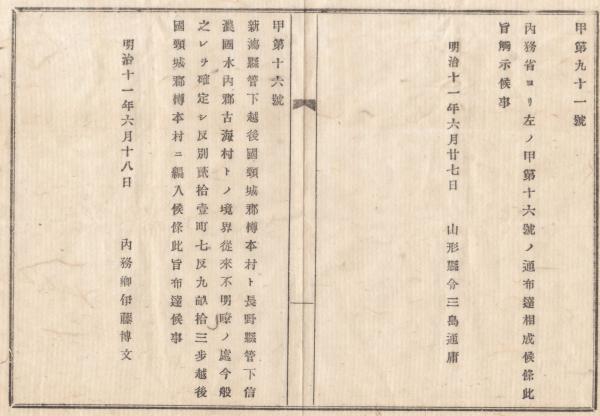 甲第九十一號
內務省ヨリ左ノ甲第十六號ノ通布達相成候條此
旨觸示候事
明治十一年六月廿七日　山形縣令三島通庸
甲第十六號
新潟縣管下越後國頸城郡樽本村ト長野縣管下信
濃國水內郡古海村トノ境界從來不明瞭ノ處今般
之レヲ確定シ反別貳拾壹町七反九畝拾三步越後
國頸城郡樽本村ニ編入候條此旨布達候事
明治十一年六月十八日　內務卿伊藤博文